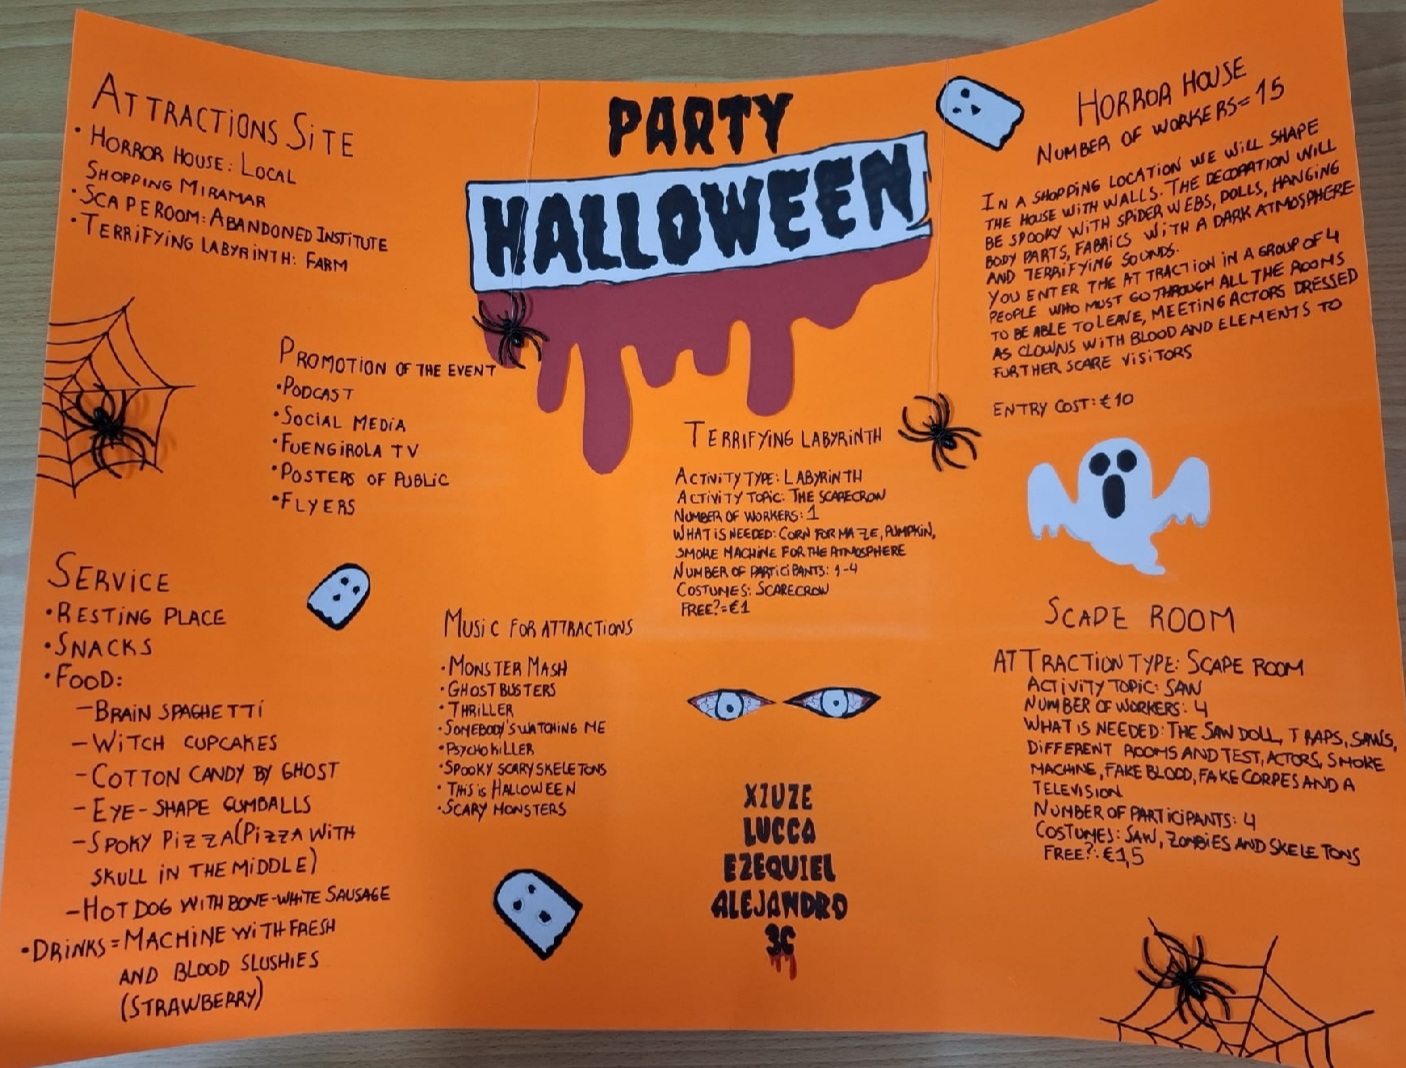 PARTY
HALLOWEEN
ATTRACTIONS SITE
• HORROR HOUSE: LOCAL
SHOPPING MIRAMAR
• SCAPEROOM: ABANDONED INSTITUTE
• TERRIFYING LABYRINTH: FARM
PROMOTION OF THE EVENT
• PODCAST
• SOCIAL MEDIA
• FUENGIROLA TV
• POSTERS OF PUBLIC
• FLYERS
SERVICE
• RESTING PLACE
• SNACKS
• FOOD:
- BRAIN SPAGHETTI
- WITCH CUPCAKES
- COTTON CANDY BY GHOST
- EYE-SHAPE GUMBALLS
- SPOKY PIZZA (PIZZA WITH
SKULL IN THE MIDDLE)
- HOT DOG WITH BONE-WHITE SAUSAGE
• DRINKS = MACHINE WITH FRESH
AND BLOOD SLUSHIES
(STRAWBERRY)
MUSIC FOR ATTRACTIONS
• MONSTER MASH
• GHOSTBUSTERS
• THRILLER
• SOMEBODY'S WATCHING ME
• PSYCHO KILLER
• SPOOKY SCARY SKELETONS
• THIS IS HALLOWEEN
• SCARY MONSTERS
TERRIFYING LABYRINTH
ACTIVITY TYPE: LABYRINTH
ACTIVITY TOPIC: THE SCARECROW
NUMBER OF WORKERS: 1
WHAT IS NEEDED: CORN FOR MAZE, PUMPKIN,
SMOKE MACHINE FOR THE ATMOSPHERE
NUMBER OF PARTICIPANTS: 1-4
COSTUMES: SCARECROW
FREE?: €1
XIUZE
LUCCA
EZEQUIEL
ALEJANDRO
3C
HORROR HOUSE
NUMBER OF WORKERS = 15
IN A SHOPPING LOCATION WE WILL SHAPE
THE HOUSE WITH WALLS. THE DECORATION WILL
BE SPOOKY WITH SPIDER WEBS, DOLLS, HANGING
BODY PARTS, FABRICS WITH A DARK ATMOSPHERE
AND TERRIFYING SOUNDS.
YOU ENTER THE ATTRACTION IN A GROUP OF 4
PEOPLE WHO MUST GO THROUGH ALL THE ROOMS
TO BE ABLE TO LEAVE, MEETING ACTORS DRESSED
AS CLOWNS WITH BLOOD AND ELEMENTS TO
FURTHER SCARE VISITORS
ENTRY COST: €10
SCAPE ROOM
ATTRACTION TYPE: SCAPE ROOM
ACTIVITY TOPIC: SAW
NUMBER OF WORKERS: 4
WHAT IS NEEDED: THE SAW DOLL, TRAPS, SAWS,
DIFFERENT ROOMS AND TEST, ACTORS, SMOKE
MACHINE, FAKE BLOOD, FAKE CORPES AND A
TELEVISION
NUMBER OF PARTICIPANTS: 4
COSTUMES: SAW, ZOMBIES AND SKELETONS
FREE?: €1,5